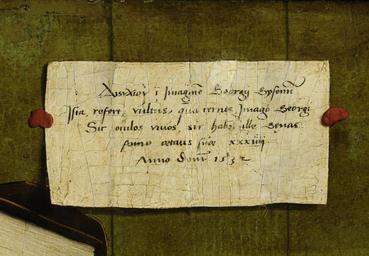 Δίστιχον ῑ Imaginē Georgij Gysenij
Ista refert vultus, quā cernis, Imago Georgi
Sic oculos viuos, sic habet ille genas
Anno ætatis suæ xxxiiij
Anno dom̄ 1532